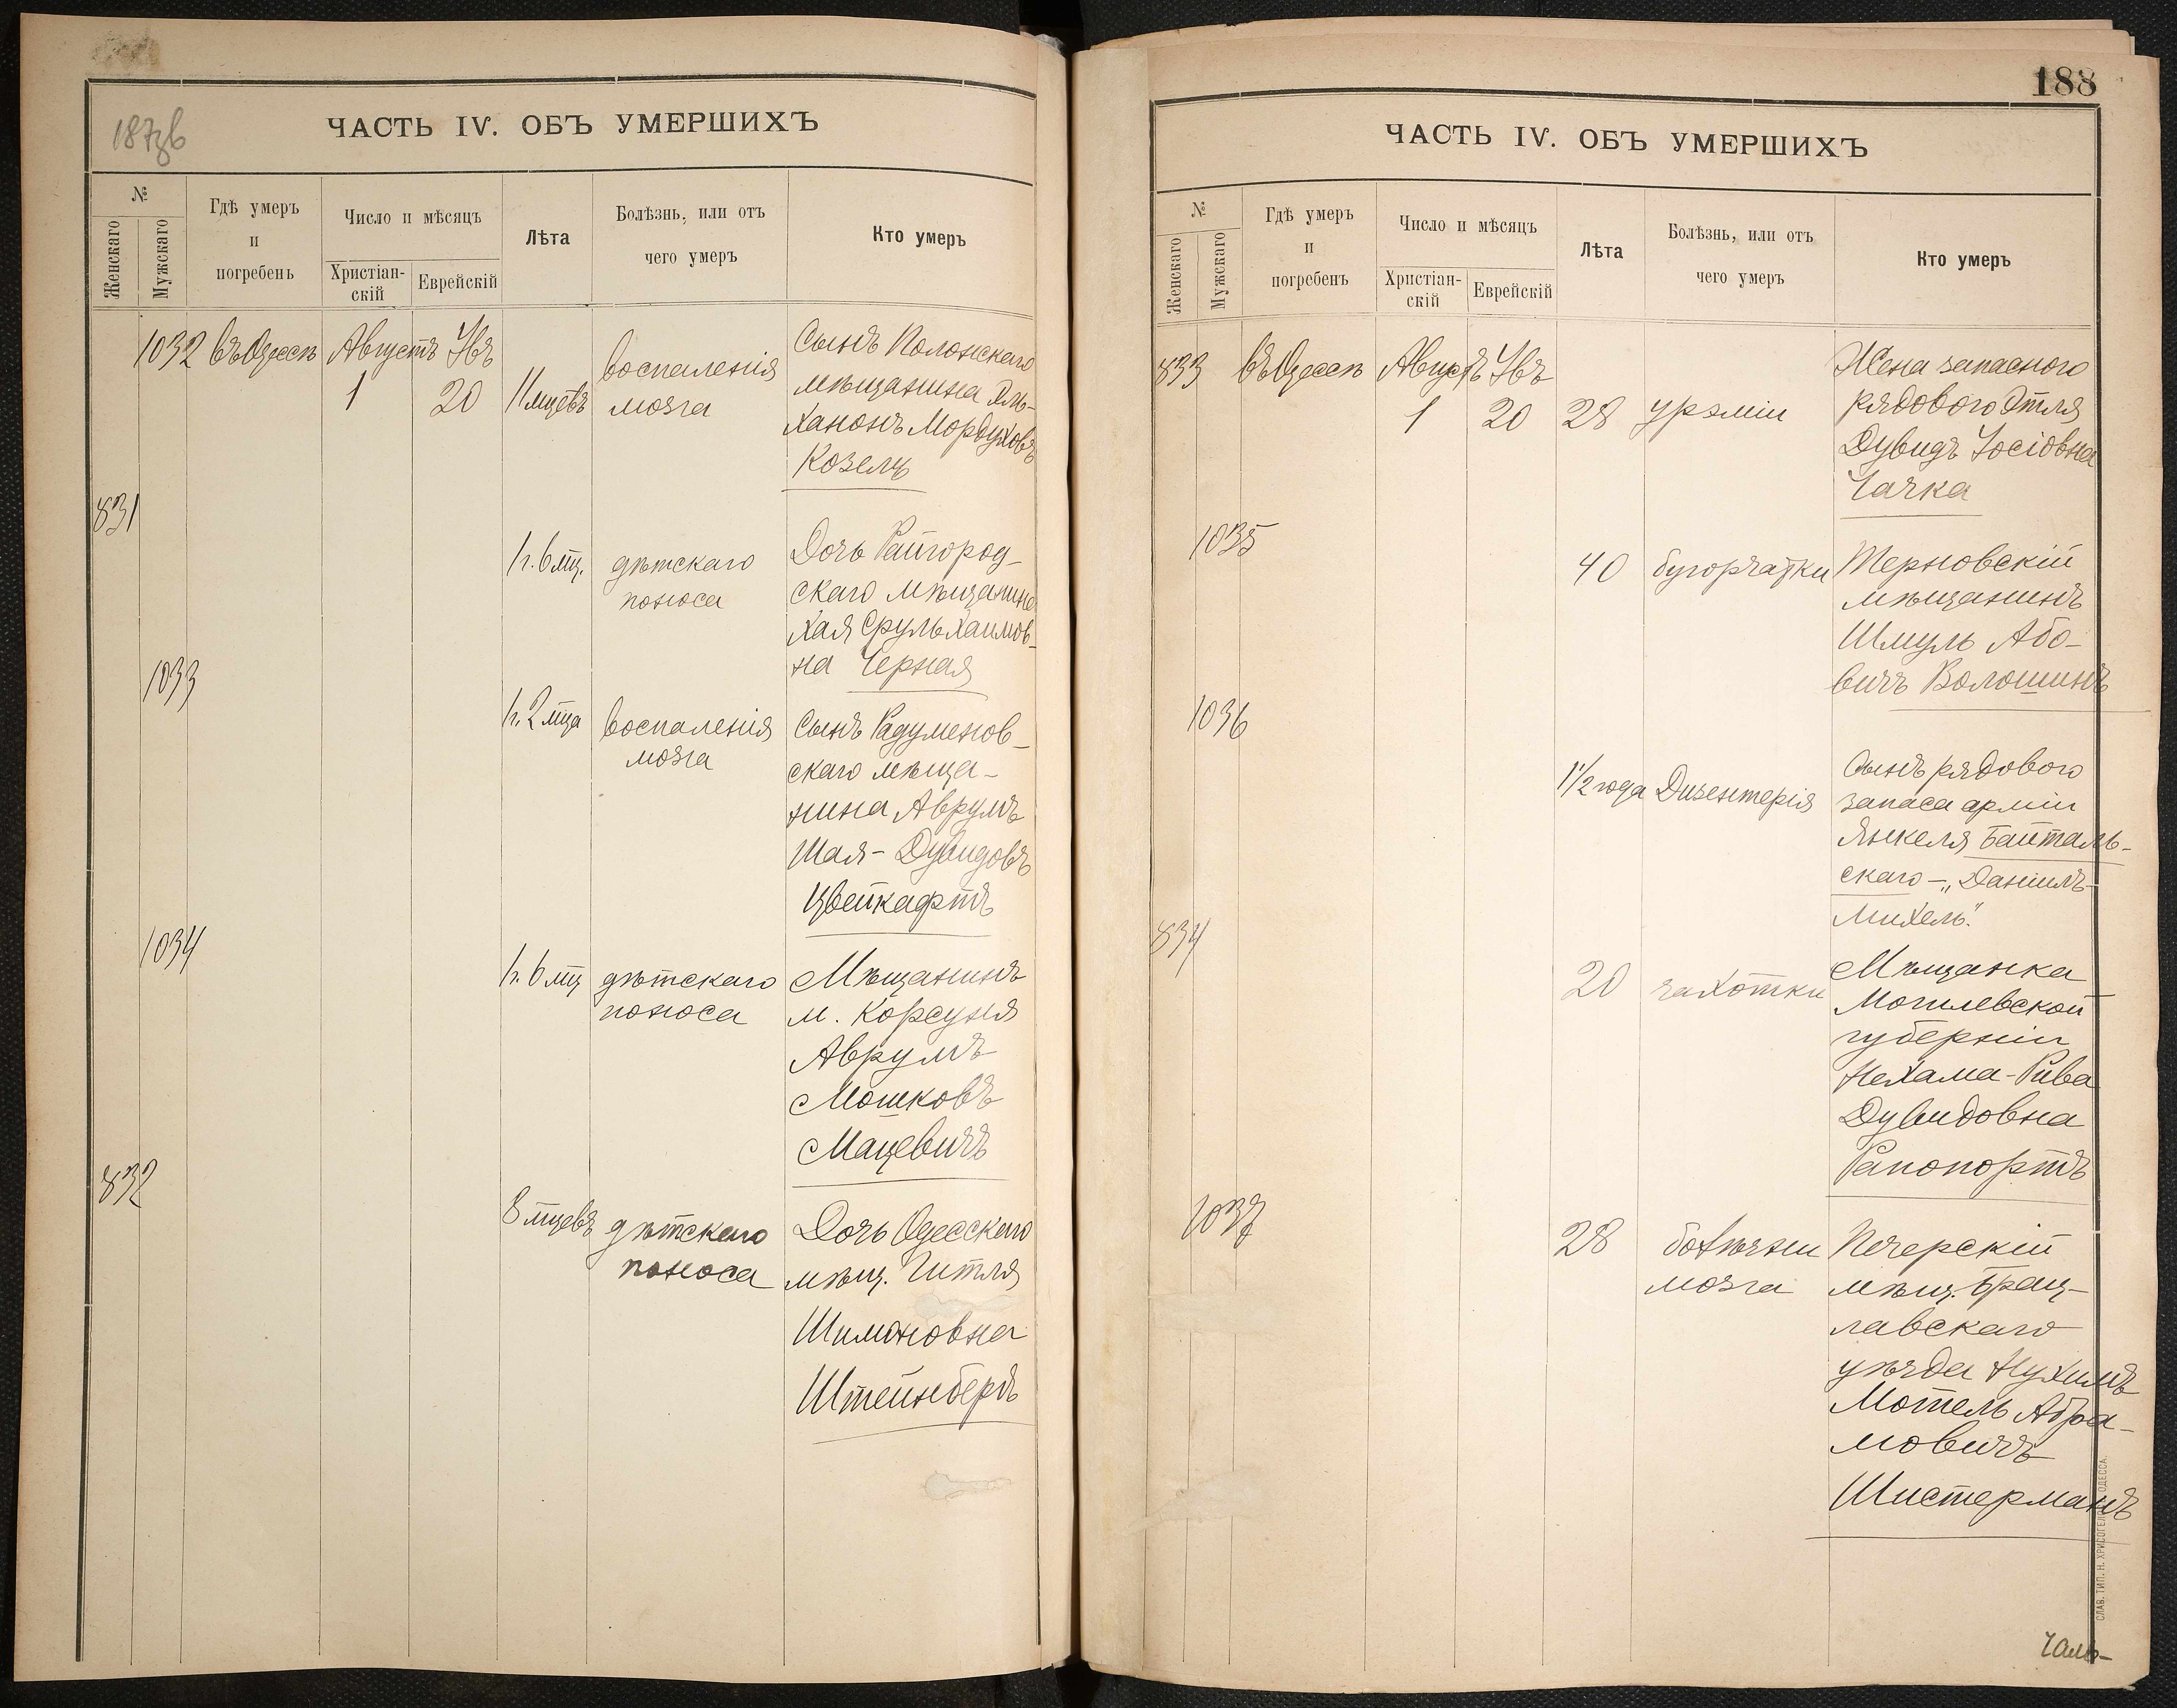 ЧАСТЬ IV. ОБЪ УМЕРШИХЪ
№
Женскаго
Мужскаго
Гдѣ умеръ
и
погребенъ
Число и мѣсяцъ
Христіан-
скій
Еврейскій
Лѣта
Болѣзнь, или отъ
чего умеръ
Кто умеръ
1032 въ Одессѣ Августъ
1 20 11 мцевъ
воспаленія
мозга
Сынъ Полонскаго
мѣщанина Эль-
ханонъ Мордуховъ
Козелъ
831
1 г. 6 мц. дѣтскаго
поноса
Дочь Райгород-
скаго мѣщанина
Хая Сруль Хаимов-
на Черная
1033
1 г. 2 мца воспаленія
мозга
Сынъ Радуменов-
скаго мѣща-
нина Аврумъ
Шая-Дувидовъ
Цвейкафтъ
1034
1 г. 6 мц дѣтскаго
поноса
Мѣщанинъ
м. Корсуня
Аврумъ
Мошковъ
Мацевичъ
832
8 мцевъ дѣтскаго
поноса
Дочь Одесскаго
мѣщ. Гитля
Шимоновна
Штейнбергъ
188
ЧАСТЬ IV. ОБЪ УМЕРШИХЪ
№
Женскаго
Мужскаго
Гдѣ умеръ
и
погребенъ
Число и мѣсяцъ
Христіан-
скій
Еврейскій
Лѣта
Болѣзнь, или отъ
чего умеръ
Кто умеръ
833 въ Одессѣ Августъ
1 20 28 урэміи
Жена запаснаго
рядового Этля
Дувидъ Іосіовна
Чачка
1035
40 бугорчатки
Терновскій
мѣщанинъ
Шмуль Або-
вичъ Волошинъ
1036
1 1/2 года Дизентерія
Сынъ рядового
запаса арміи
Янкеля Байталь-
скаго - „Даніилъ-
Михель".
834
20 чахотки
Мѣщанка
Могилевской
губерніи
Нехама-Рива
Дувидовна
Рапопортъ
1037
28 болѣзни
мозга
Печерскій
мѣщ. Брац-
лавскаго
уѣзда Нухимъ
Мотель Абра-
мовичъ
Шистерманъ
СЛАВ. ТИП. Н. ХРИСОГЕЛОСЪ ОДЕССА.